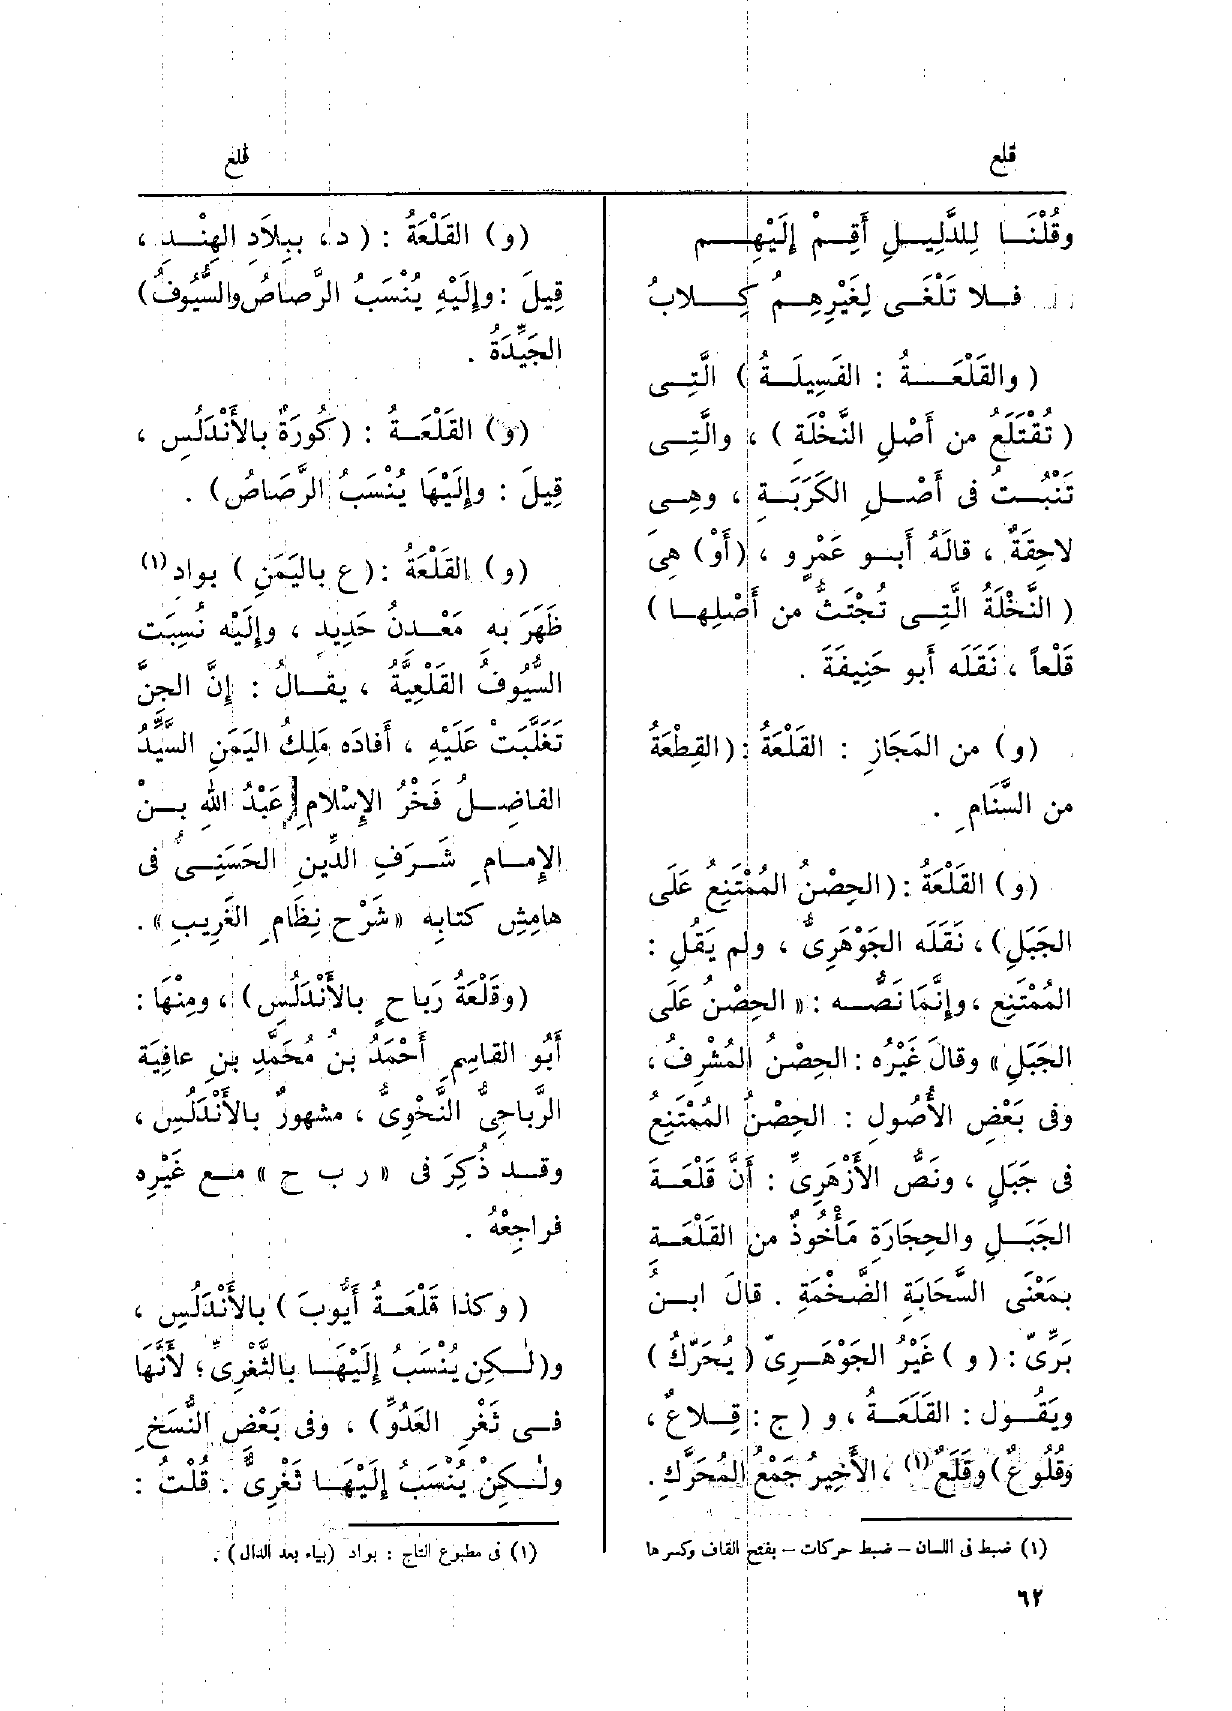 قلع
قلع
وقُلْنَا لِلدَّلِيلِ أَقِمْ إِلَيْهِمْ
فَلا تَلْغَى لِغَيْرِهِمُ كِلابُ
( والقَلْعَةُ : الفَسِيلَةُ ) الَّتِى
( تُقْتَلَعُ من أَصْلِ النَّخْلَةِ ) ، والَّتِى
تَنْبُتُ فى أَصْلِ الكَرَبَةِ ، وهِى
لاحِقَةٌ ، قالَهُ أَبو عَمْرٍو ، (أَوْ) هِىَ
( النَّخْلَةُ الَّتِى تُجْتَثُّ من أَصْلِها )
قَلْعاً ، نَقَلَه أَبو حَنِيفَةَ .
(و) من المَجَازِ : القَلْعَةُ : (القِطْعَةُ
من السَّنَامِ .
(و) القَلْعَةُ : (الحِصْنُ المُمْتَنِعُ عَلَى
الجَبَلِ) ، نَقَلَه الجَوْهَرِىُّ ، ولم يَقُلِ :
المُمْتَنِع ، وإِنَّمَا نَصُّه : « الحِصْنُ عَلَى
الجَبَلِ » وقالَ غَيْرُه : الحِصْنُ المُشْرِفُ ،
وفى بَعْضِ الأُصُولِ : الحِصْنُ المُمْتَنِعُ
فى جَبَلٍ ، ونَصُّ الأَزْهَرِىِّ : أَنَّ قَلْعَةَ
الجَبَلِ والحِجَارَةِ مَأْخُوذٌ من القَلْعَةِ
بمَعْنَى السَّحَابَةِ الضَّخْمَةِ . قالَ ابنُ
بَرِّىّ : (و) غَيْرُ الجَوْهَرِىّ ( يُحَرِّكُ )
ويَقُول : القَلَعَةُ ، و ( ج : قِلاعٌ ،
وقُلُوعٌ ) وقَلَعٌ (١) ، الأَخِيرُ جَمْعُ المُحَرَّكِ .
(١) ضبط فى اللسان – ضبط حركات – بفتح القاف وكسرها
٦٢
(و) القَلْعَةُ : ( د ، بِبِلاَدِ الهِنْدِ ،
قِيلَ : وإِلَيْهِ يُنْسَبُ الرَّصاصُ والسُّيُوفُ)
الجَيِّدَةُ .
(و) القَلْعَةُ : (كُورَةٌ بالأَنْدَلُسِ ،
قِيلَ : وإِلَيْهَا يُنْسَبُ الرَّصَاصُ) .
(و) القَلْعَةُ : (ع باليَمَنِ ) بواد (١)
ظَهَرَ به مَعْدِنُ حَدِيدٍ ، وإِلَيْه نُسِبَت
السُّيُوفُ القَلْعِيَّةُ ، يقالُ : إِنَّ الجِنَّ
تَغَلَّبَتْ عَلَيْهِ ، أَفادَه مَلِكُ اليَمَنِ السَّيِّدُ
الفاضِلُ فَخْرُ الإِسْلامِ عَبْدُ اللهِ بنْ
الإِمامِ شَرَفِ الدِّينِ الحَسَنِىُّ فى
هامِشِ كتابِه «شَرْح نِظَامِ الغَرِيبِ» .
(وقَلْعَةُ رَبَاحٍ بالأَنْدَلُسِ) ، ومِنْهَا :
أَبُو القاسِمِ أَحْمَدُ بنُ مُحَمَّدِ بنِ عافِيَة
الرَّباحِىُّ النَّحْوِىُّ ، مشهورٌ بالأَنْدَلُسِ ،
وقد ذُكِرَ فى « ر ب ح » مع غَيْرِه
فراجِعْهُ .
( وكذا قَلْعَةُ أَيُّوبَ ) بالأَنْدَلُسِ ،
و(لٰكِن يُنْسَبُ إِلَيْهَا بالثَّغْرِىِّ ؛ لأَنَّهَا
فى ثَغْرِ العَدُوِّ) ، وفى بَعْضِ النُّسَخِ
ولٰكِنْ يُنْسَبُ إِلَيْهَا ثَغْرِىٌّ . قُلْتُ :
(١) فى مطبوع التاج : بوادٍ (بياء بعد الدال) .